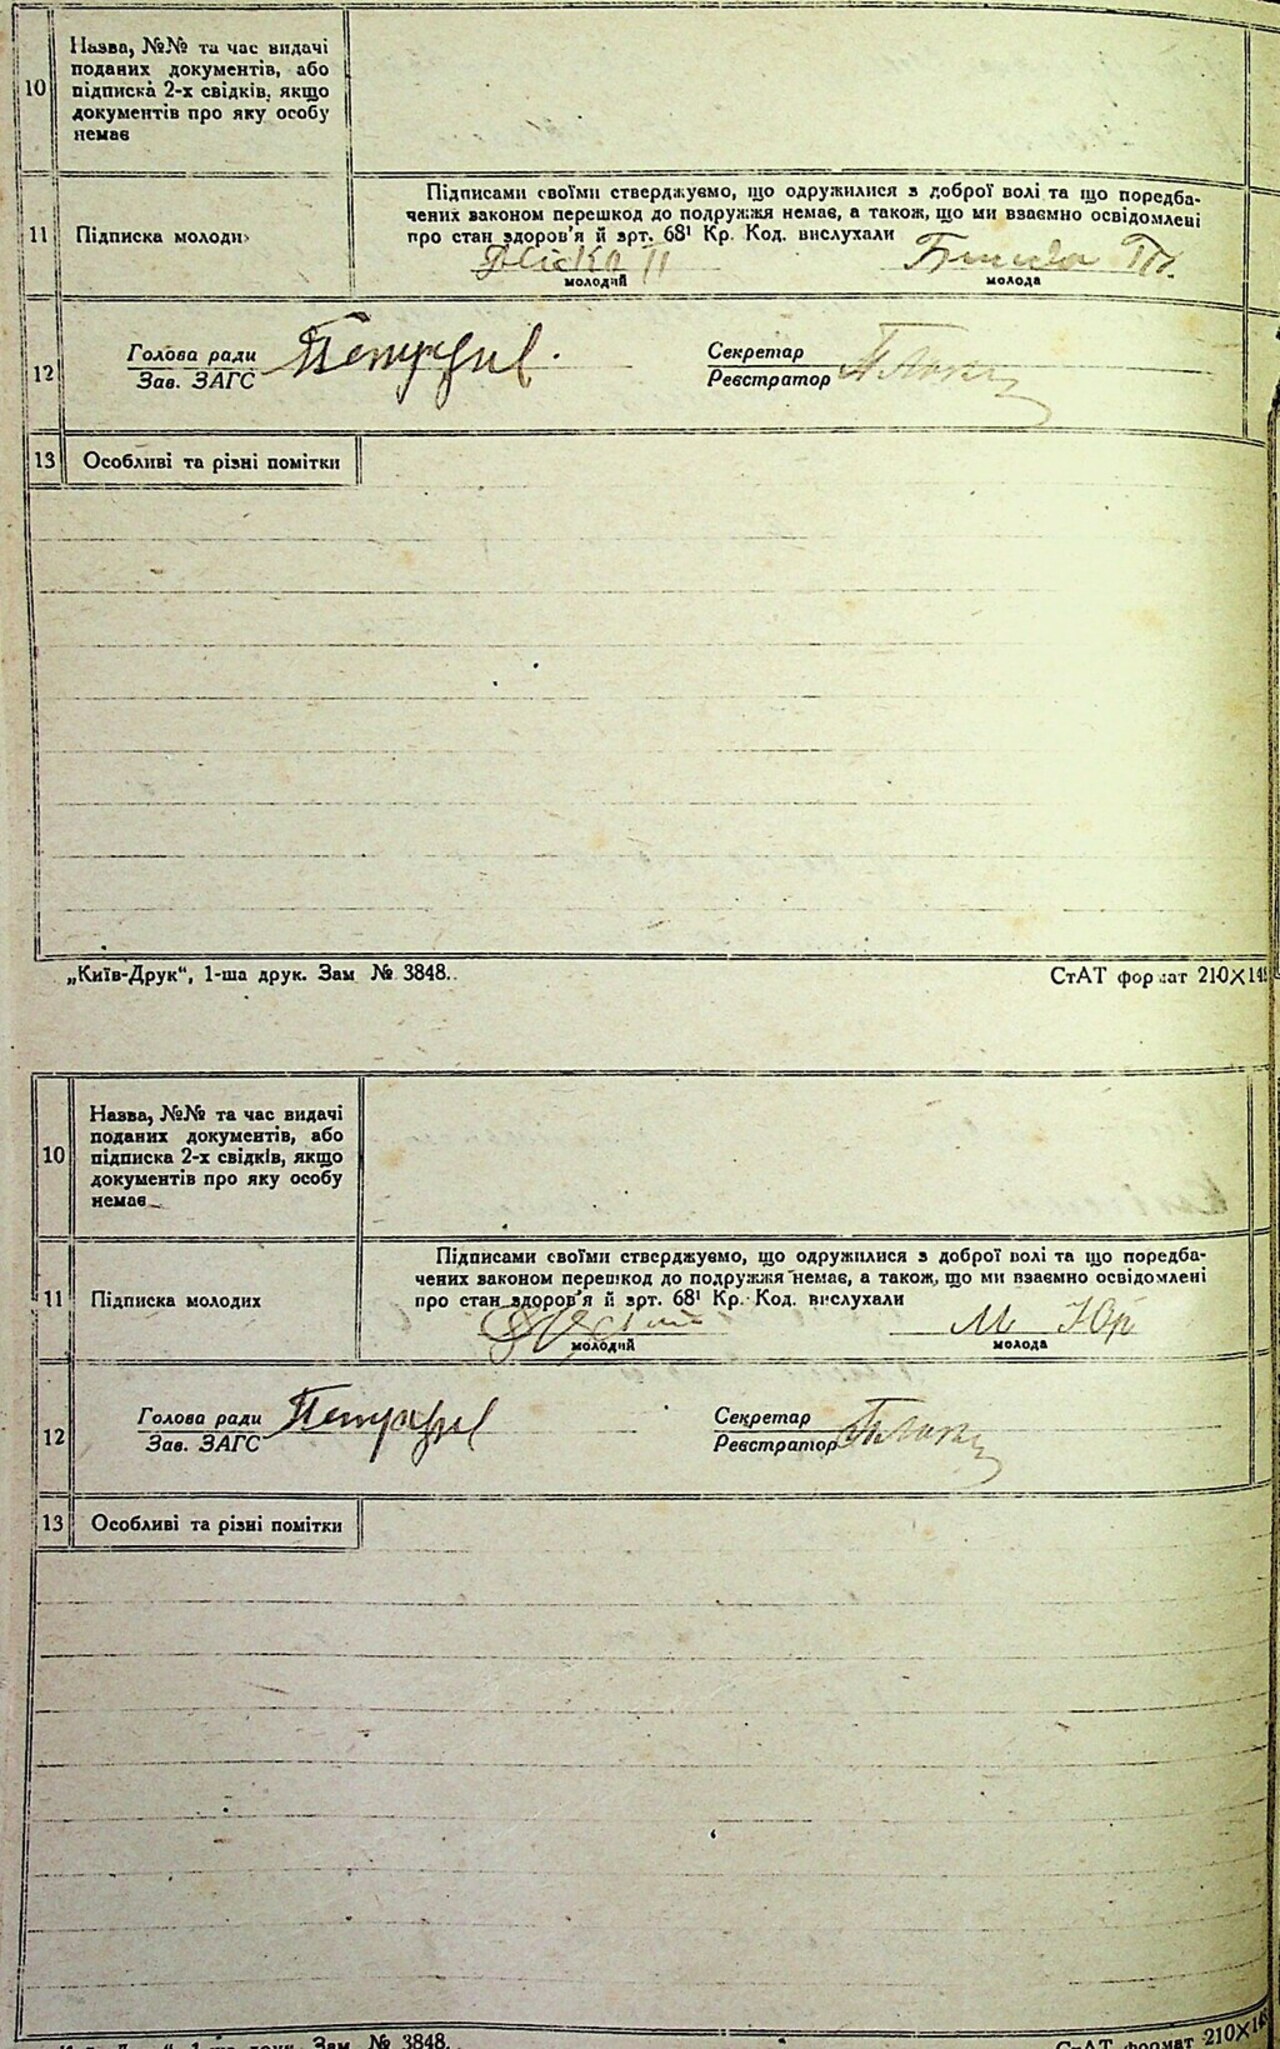 10
Назва, №№ та час видачі
поданих документів, або
підписка 2-х свідків, якщо
документів про яку особу
немає
11
Підписка молодих
Підписами своїми стверджуємо, що одружилися з доброї волі та що передба-
чених законом перешкод до подружжя немає, а також, що ми взаємно освідомлені
про стан здоров'я й арт. 68¹ Кр. Код. вислухали
молодий
молода
12
Голова ради
Зав. ЗАГС
Секретар
Реєстратор
13 Особливі та різні помітки
„Київ-Друк“, 1-ша друк. Зам № 3848.
СтАТ формат 210×148
10
Назва, №№ та час видачі
поданих документів, або
підписка 2-х свідків, якщо
документів про яку особу
немає
11
Підписка молодих
Підписами своїми стверджуємо, що одружилися з доброї волі та що передба-
чених законом перешкод до подружжя немає, а також, що ми взаємно освідомлені
про стан здоров'я й арт. 68¹ Кр. Код. вислухали
М Юр
молодий
молода
12
Голова ради
Зав. ЗАГС
Секретар
Реєстратор
13 Особливі та різні помітки
1-ша друк. Зам. № 3848.
СтАТ формат 210×148